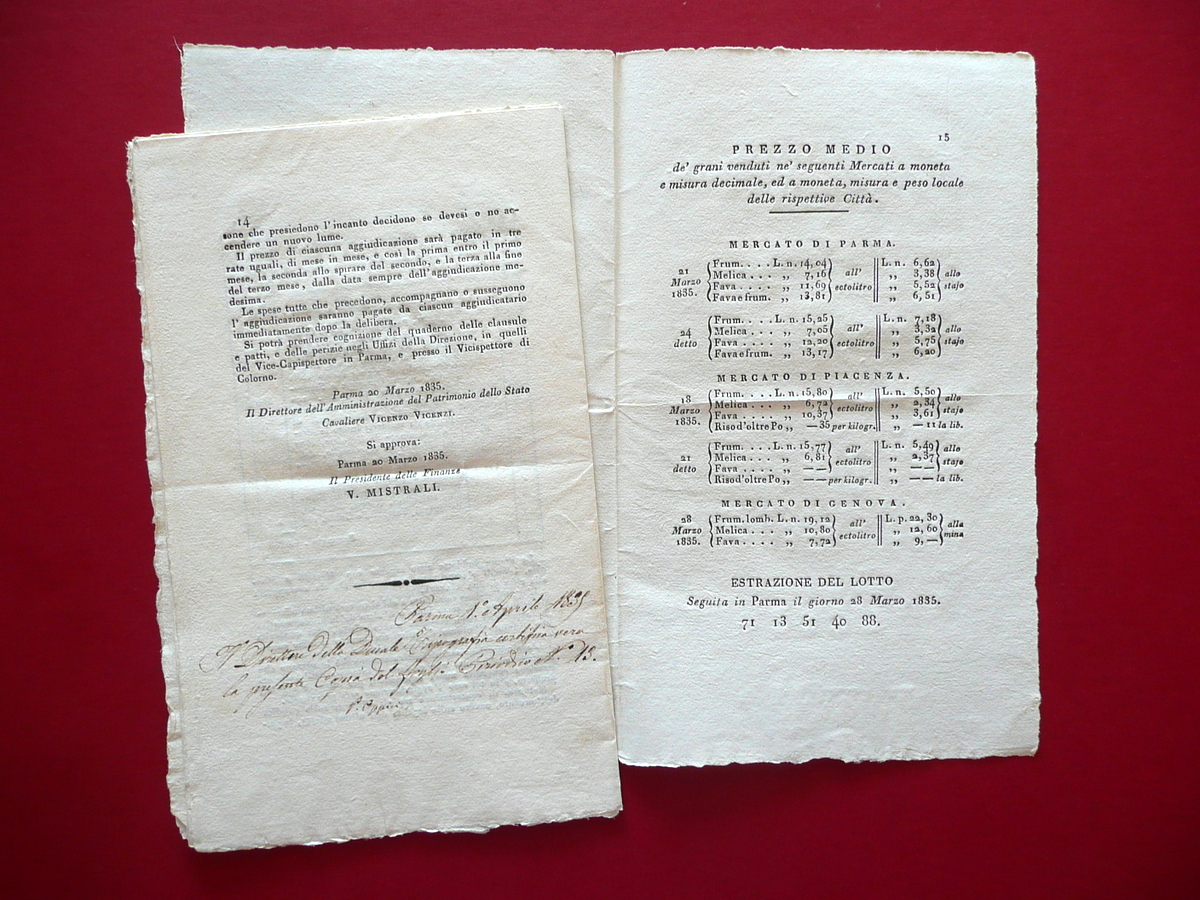 14
sone che presiedono l'incanto decidono se devesi o no ac-
cendere un nuovo lume.
Il prezzo di ciascuna aggiudicazione sarà pagato in tre
rate uguali, di mese in mese, e così la prima entro il primo
mese, la seconda allo spirare del secondo, e la terza alla fine
del terzo mese, dalla data sempre dell'aggiudicazione me-
desima.
Le spese tutte che precedono, accompagnano o susseguono
l'aggiudicazione saranno pagate da ciascun aggiudicatario
immediatamente dopo la delibera.
Si potrà prendere cognizione del quaderno delle clausule
e patti, e delle perizie negli Uffizi della Direzione, in quelli
del Vice-Capispettore in Parma, e presso il Vicispettore di
Colorno.
Parma 20 Marzo 1835.
Il Direttore dell'Amministrazione del Patrimonio dello Stato
Cavaliere VICENZO VICENZI.
Si approva:
Parma 20 Marzo 1835.
Il Presidente delle Finanze
V. MISTRALI.
Parma 1.° Aprile 1835
Il Direttore della Ducale Tipografia certifica vera
la presente Copia del foglio Periodico N.° 13.
15
PREZZO MEDIO
de' grani venduti ne' seguenti Mercati a moneta
e misura decimale, ed a moneta, misura e peso locale
delle rispettive Città.
MERCATO DI PARMA.
21 Marzo 1835.
Frum. . . . L. n. 14,04 all' ectolitro L. n. 6,62 allo stajo
Melica . . . „ 7,16 „ 3,38
Fava . . . . „ 11,69 „ 5,52
Fava e frum. „ 13,81 „ 6,51
24 detto
Frum. . . . L. n. 15,25 all' ectolitro L. n. 7,18 allo stajo
Melica . . . „ 7,05 „ 3,32
Fava . . . . „ 12,20 „ 5,75
Fava e frum. „ 13,17 „ 6,20
MERCATO DI PIACENZA.
18 Marzo 1835.
Frum. . . . L. n. 15,80 all' ectolitro L. n. 5,50 allo stajo
Melica . . . „ 6,72 „ 2,34
Fava . . . . „ 10,37 „ 3,61
Riso d'oltre Po „ — 35 per kilogr. „ — 11 la lib.
21 detto
Frum. . . . L. n. 15,77 all' ectolitro L. n. 5,49 allo stajo
Melica . . . „ 6,81 „ 2,37
Fava . . . . „ — — „ — —
Riso d'oltre Po „ — — per kilogr. „ — — la lib.
MERCATO DI GENOVA.
28 Marzo 1835.
Frum. lomb. L. n. 19,12 all' ectolitro L. p. 22, 30 alla mina
Melica . . . „ 10,80 „ 12, 60
Fava . . . . „ 7,72 „ 9, —
ESTRAZIONE DEL LOTTO
Seguita in Parma il giorno 28 Marzo 1835.
71 13 51 40 88.